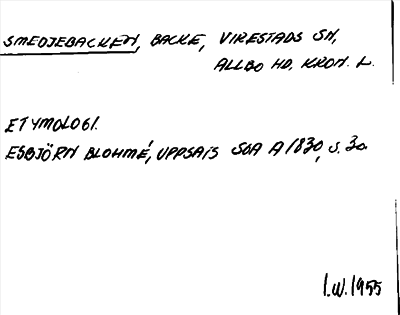 SMEDJEBACKEN, BACKE, VIRESTADS SN,
ALLBO HD. KRON. L.
ETYMOLOGI.
ESBJÖRN BLOHMÉ, UPPSATS SOA A 1830, S. 30.
I.W. 1955